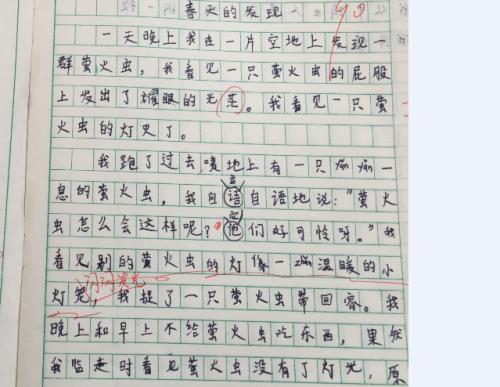 春天的发现
90
一天晚上我在一片空地上发现一
群萤火虫，我看见一只萤火虫的屁股
上发出了耀眼的光芒。我看见一只萤
火虫的灯灭了。
我跑了过去，噢地上有一只yǎn yǎn一
息的萤火虫，我自语自语地说："萤火
言
虫怎么会这样呢？他们好可怜呀。"我
看见别的萤火虫的灯像一zhǎn温暖的小
闪闪发光
灯笼，我捉了一只萤火虫带回家。我
晚上和早上不给萤火虫吃东西，果然
我监走时看见萤火虫没有了灯光，原